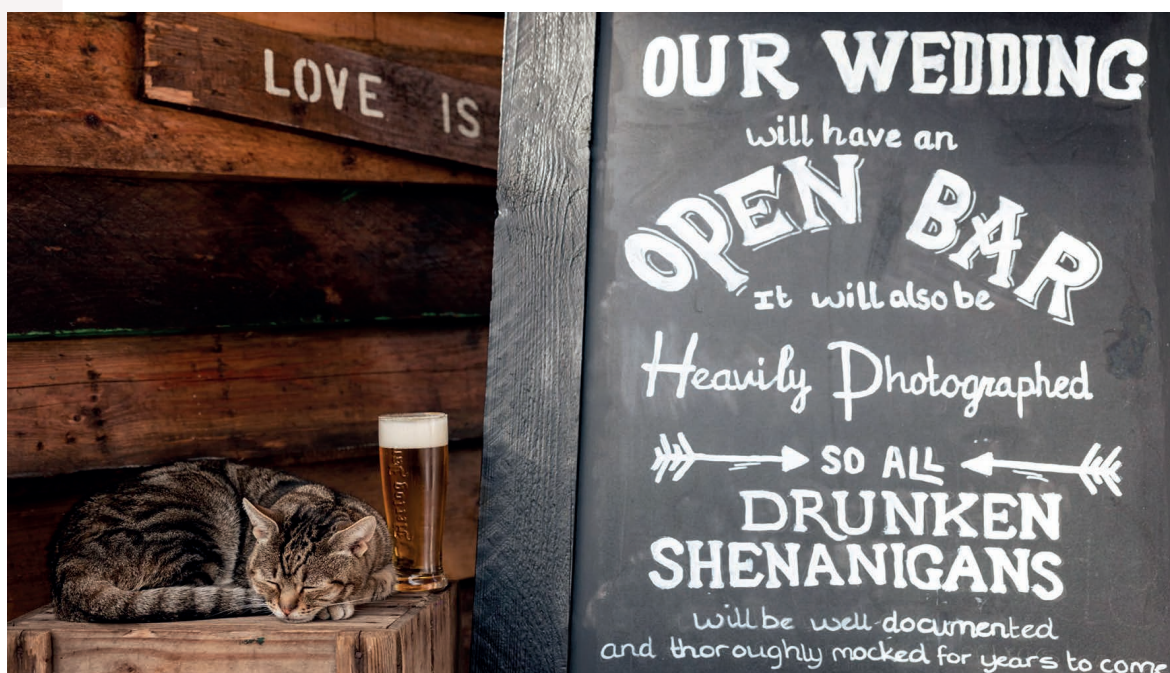 LOVE IS
OUR WEDDING
will have an
OPEN BAR
It will also be
Heavily Photographed
SO ALL
DRUNKEN
SHENANIGANS
will be well documented
and thoroughly mocked for years to come